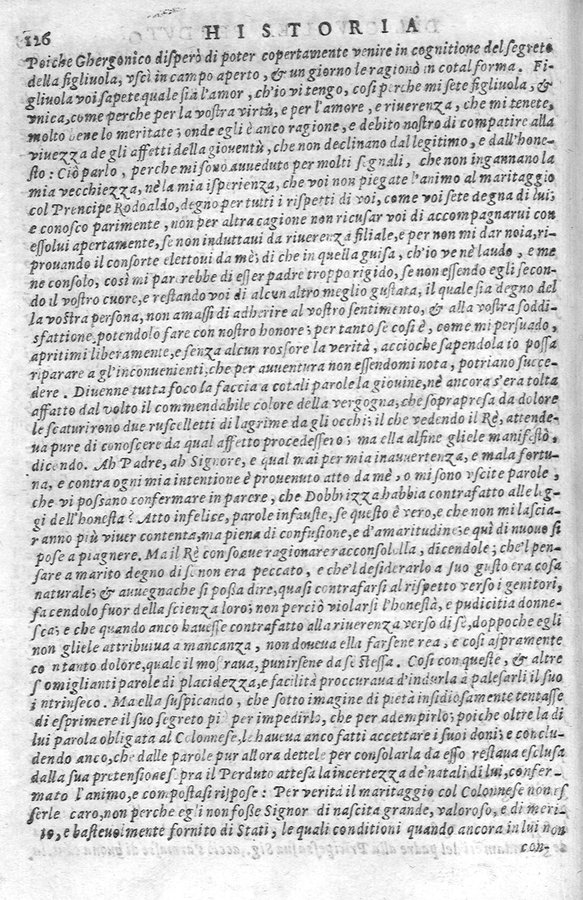 126 HISTORIA
Poiche Ghergonico disperò di poter copertamente venire in cognitione del segreto
della figliuola, vscì in campo aperto, & un giorno le ragionò in cotal forma. Fi-
gliuola voi sapete quale sia l'amor, ch'io vi tengo, cosi perche mi sete figliuola, &
vnica, come perche per la vostra virtù, e per l'amore, e riuerenza, che mi tenete,
molto bene lo meritate; onde egli è anco ragione, e debito nostro di compatire alla
viuezza de gli affetti della giouentù, che non declinano dal legitimo, e dall'hone-
sto: Ciò parlo, perche mi sono auueduto per molti segnali, che non ingannano la
mia vecchiezza, nè la mia isperienza, che voi non piegate l'animo al maritaggio
col Prencipe Rodoaldo, degno per tutti i rispetti di voi, come voi sete degna di lui;
e conosco parimente, non per altra cagione non ricusar voi di accompagnarui con
essolui apertamente, se non induttaui da riuerenza filiale, e per non mi dar noia, ri-
prouando il consorte elettoui da mè; di che in quella guisa, ch'io ve nè laudo, e me
ne consolo, così mi parerebbe di esser padre troppo rigido, se non essendo egli secon-
do il vostro cuore, e restando voi di alcun altro meglio gustata, il quale sia degno del
la vostra persona, non amassi di adherire al vostro sentimento, & alla vostra soddi-
sfattione potendolo fare con nostro honore; per tanto se così è, come mi persuado,
apritimi liberamente, e senza alcun rossore la verità, accioche sapendola io possa
riparare a gl'inconuenienti, che per auuentura non essendomi nota, potriano succe-
dere. Diuenne tutta foco la faccia a cotali parole la giouine, nè ancora s'era tolta
affatto dal volto il commendabile colore della vergogna, che soprapresa da dolore
le scaturirono due ruscelletti di lagrime da gli occhi; il che vedendo il Rè, attende-
ua pure di conoscere da qual affetto procedessero; ma ella alfine gliele manifestò,
dicendo. Ah Padre, ah Signore, e qual mai per mia inauuertenza, e mala fortu-
na, e contra ogni mia intentione è prouenuto atto da mè, o mi sono vscite parole,
che vi possano confermare in parere, che Dobbrizza habbia contrafatto alle leg-
gi dell'honestà? Atto infelice, parole infauste, se questo è vero, e che non mi lascia-
ranno più viuer contenta, ma piena di confusione, e d'amaritudine; e quì di nuouo si
pose a piagnere. Ma il Rè con soaue ragionare racconsololla, dicendole; che'l pen-
sare a marito degno di se non era peccato, e che'l desiderarlo a suo gusto era cosa
naturale; & auuegnache si poßa dire, quasi contrafarsi al rispetto verso i genitori,
facendolo fuor della scienza loro; non perciò violarsi l'honestà, e pudicitia donne-
sca; e che quando anco hauesse contrafatto alla riuerenza verso di sè, doppoche egli
non gliele attribuiua a mancanza, non doueua ella farsene rea, e così aspramente
con tanto dolore, quale il mostraua, punirsene da se stessa. Cosi con queste, & altre
somiglianti parole di placidezza, e facilità proccuraua d'indurla à palesarli il suo
intrinseco. Ma ella suspicando, che sotto imagine di pietà insidiosamente tentasse
di esprimere il suo segreto più per impedirlo, che per adempirlo; poiche oltre la di
lui parola obligata al Colonnese, le haueua anco fatti accettare i suoi doni; e conclu-
dendo anco, che dalle parole pur allora dettele per consolarla da esso restaua esclusa
dalla sua pretensione sopra il Perduto attesa la incertezza de' natali di lui, confer-
mato l'animo, e compostasi rispose: Per verità il maritaggio col Colonnese non es
serle caro, non perche egli non foße Signor di nascita grande, valoroso, e di meri-
to, e basteuolmente fornito di Stati, le quali conditioni quando ancora in lui non
con-